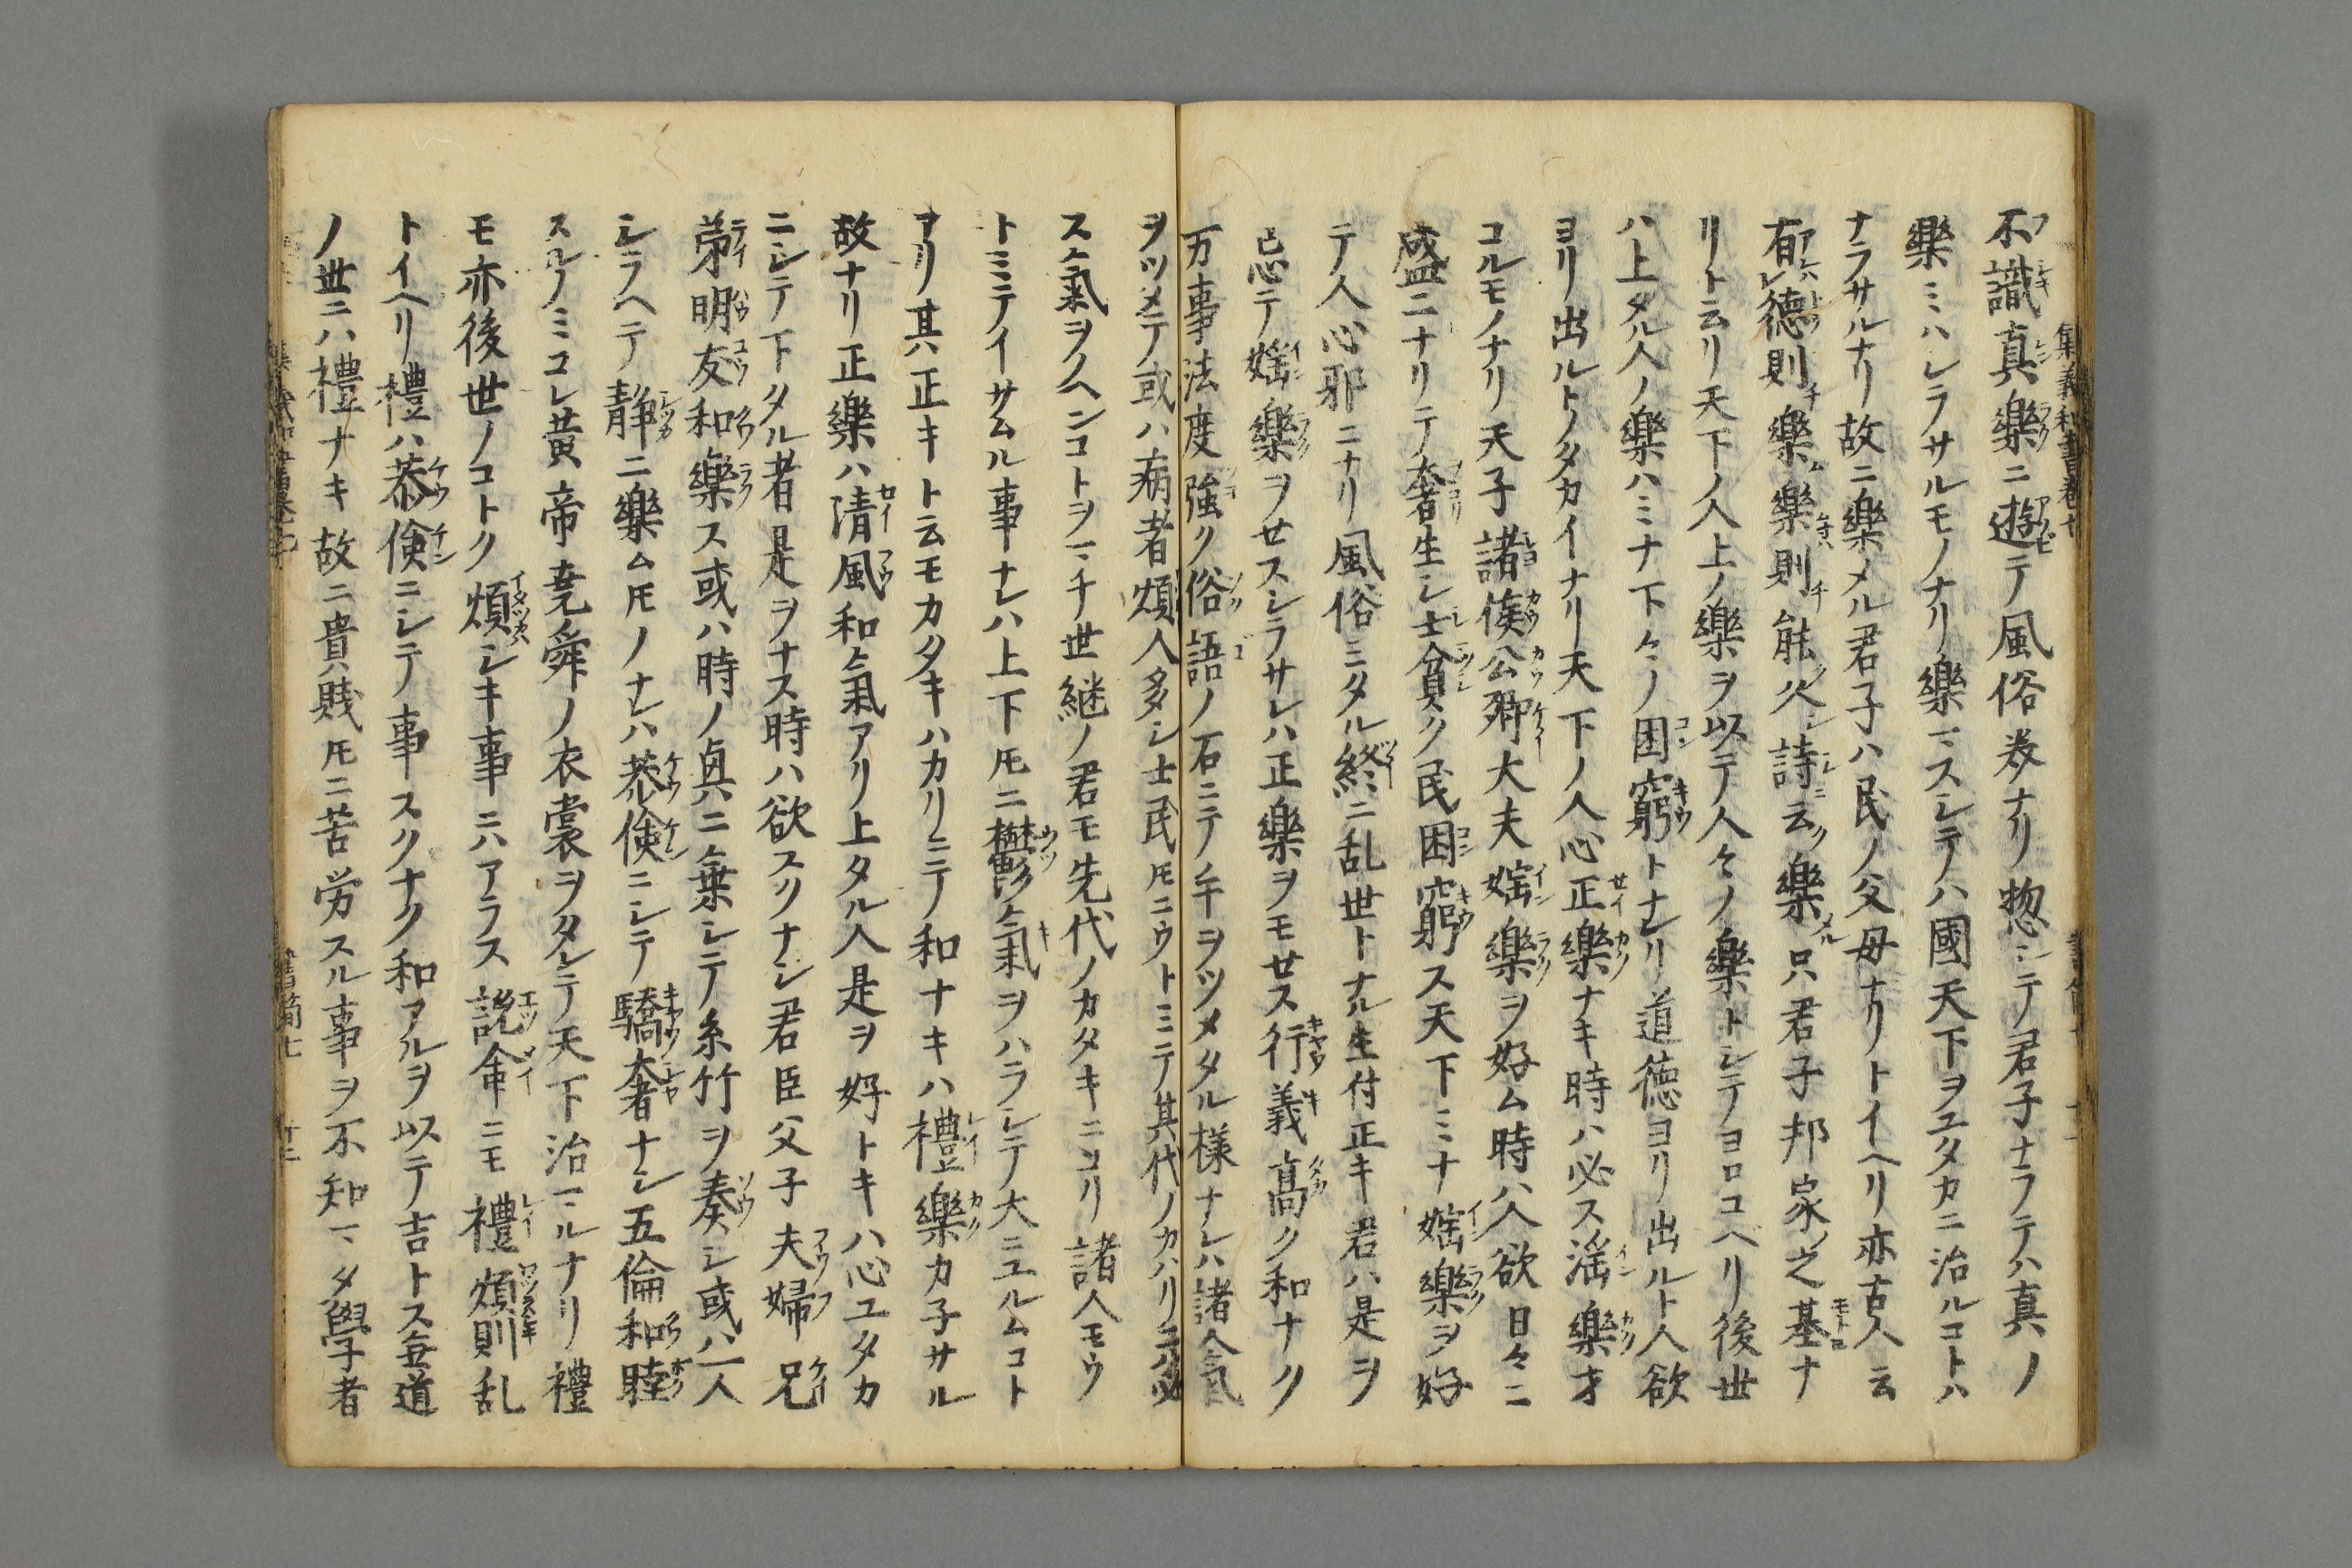 不識真樂ニ遊テ風俗美ナリ惣シテ君子ナラテハ真ノ
樂ミハシラサルモノナリ樂マスシテハ國天下ヲユタカニ治ルコトハ
ナラサルナリ故ニ樂メル君子ハ民ノ父母ナリトイヘリ亦古人云
有レ德則樂樂則能久シ詩云ク樂メル只君子邦家之基ナ
リト云リ天下ノ人上ノ樂ヲ以テ人々ノ樂トシテヨロコベリ後世
ハ上タル人ノ樂ハミナ下々ノ困窮トナレリ道徳ヨリ出ルト人欲
ヨリ出ルトノタカイナリ天下ノ人心正樂ナキ時ハ必ス淫樂才
コルモノナリ天子諸侯公卿大夫婬樂ヲ好ム時ハ人欲日々ニ
盛ニナリテ奢生シ士貧ク民困窮ス天下ミナ婬樂ヲ好
テ人心邪ニナリ風俗ミタル終ニ乱世トナル生付正キ君ハ是ヲ
忌テ婬樂ヲセスシラサレハ正樂ヲモセス行義高ク和ナク
万事法度強ク俗語ノ石ニテ手ヲツメタル様ナレハ諸人氣
ヲツメテ或ハ病者煩人多シ士民𪜈ニウトミテ其代ノカハリニハ必
ス氣ヲノヘンコトヲマチ世継ノ君モ先代ノカタキニコリ諸人モウ
トミテイサムル事ナレハ上下𪜈ニ鬱氣ヲハラシテ大ニユルムコト
アリ其正キト云モカタキハカリニテ和ナキハ禮樂カ子サル
故ナリ正樂ハ清風和氣アリ上タル人是ヲ好トキハ心ユタカ
ニシテ下タル者是ヲナス時ハ欲スクナシ君臣父子夫婦兄
弟明友和樂ス或ハ時ノ與ニ乗シテ糸竹ヲ奏シ或ハ一人
シラヘテ静ニ樂ム𪜈ノナレハ恭儉ニシテ驕奢ナシ五倫和睦
スルノミコレ黄帝尭舜ノ衣裳ヲタレテ天下治マルナリ禮
モ亦後世ノコトク煩シキ事ニハアラス説命ニモ禮煩則乱
トイヘリ禮ハ恭儉ニシテ事スクナク和アルヲ以テ吉トス無道
ノ世ニハ禮ナキ故ニ貴賎𪜈ニ苦労スル事ヲ不知マタ學者